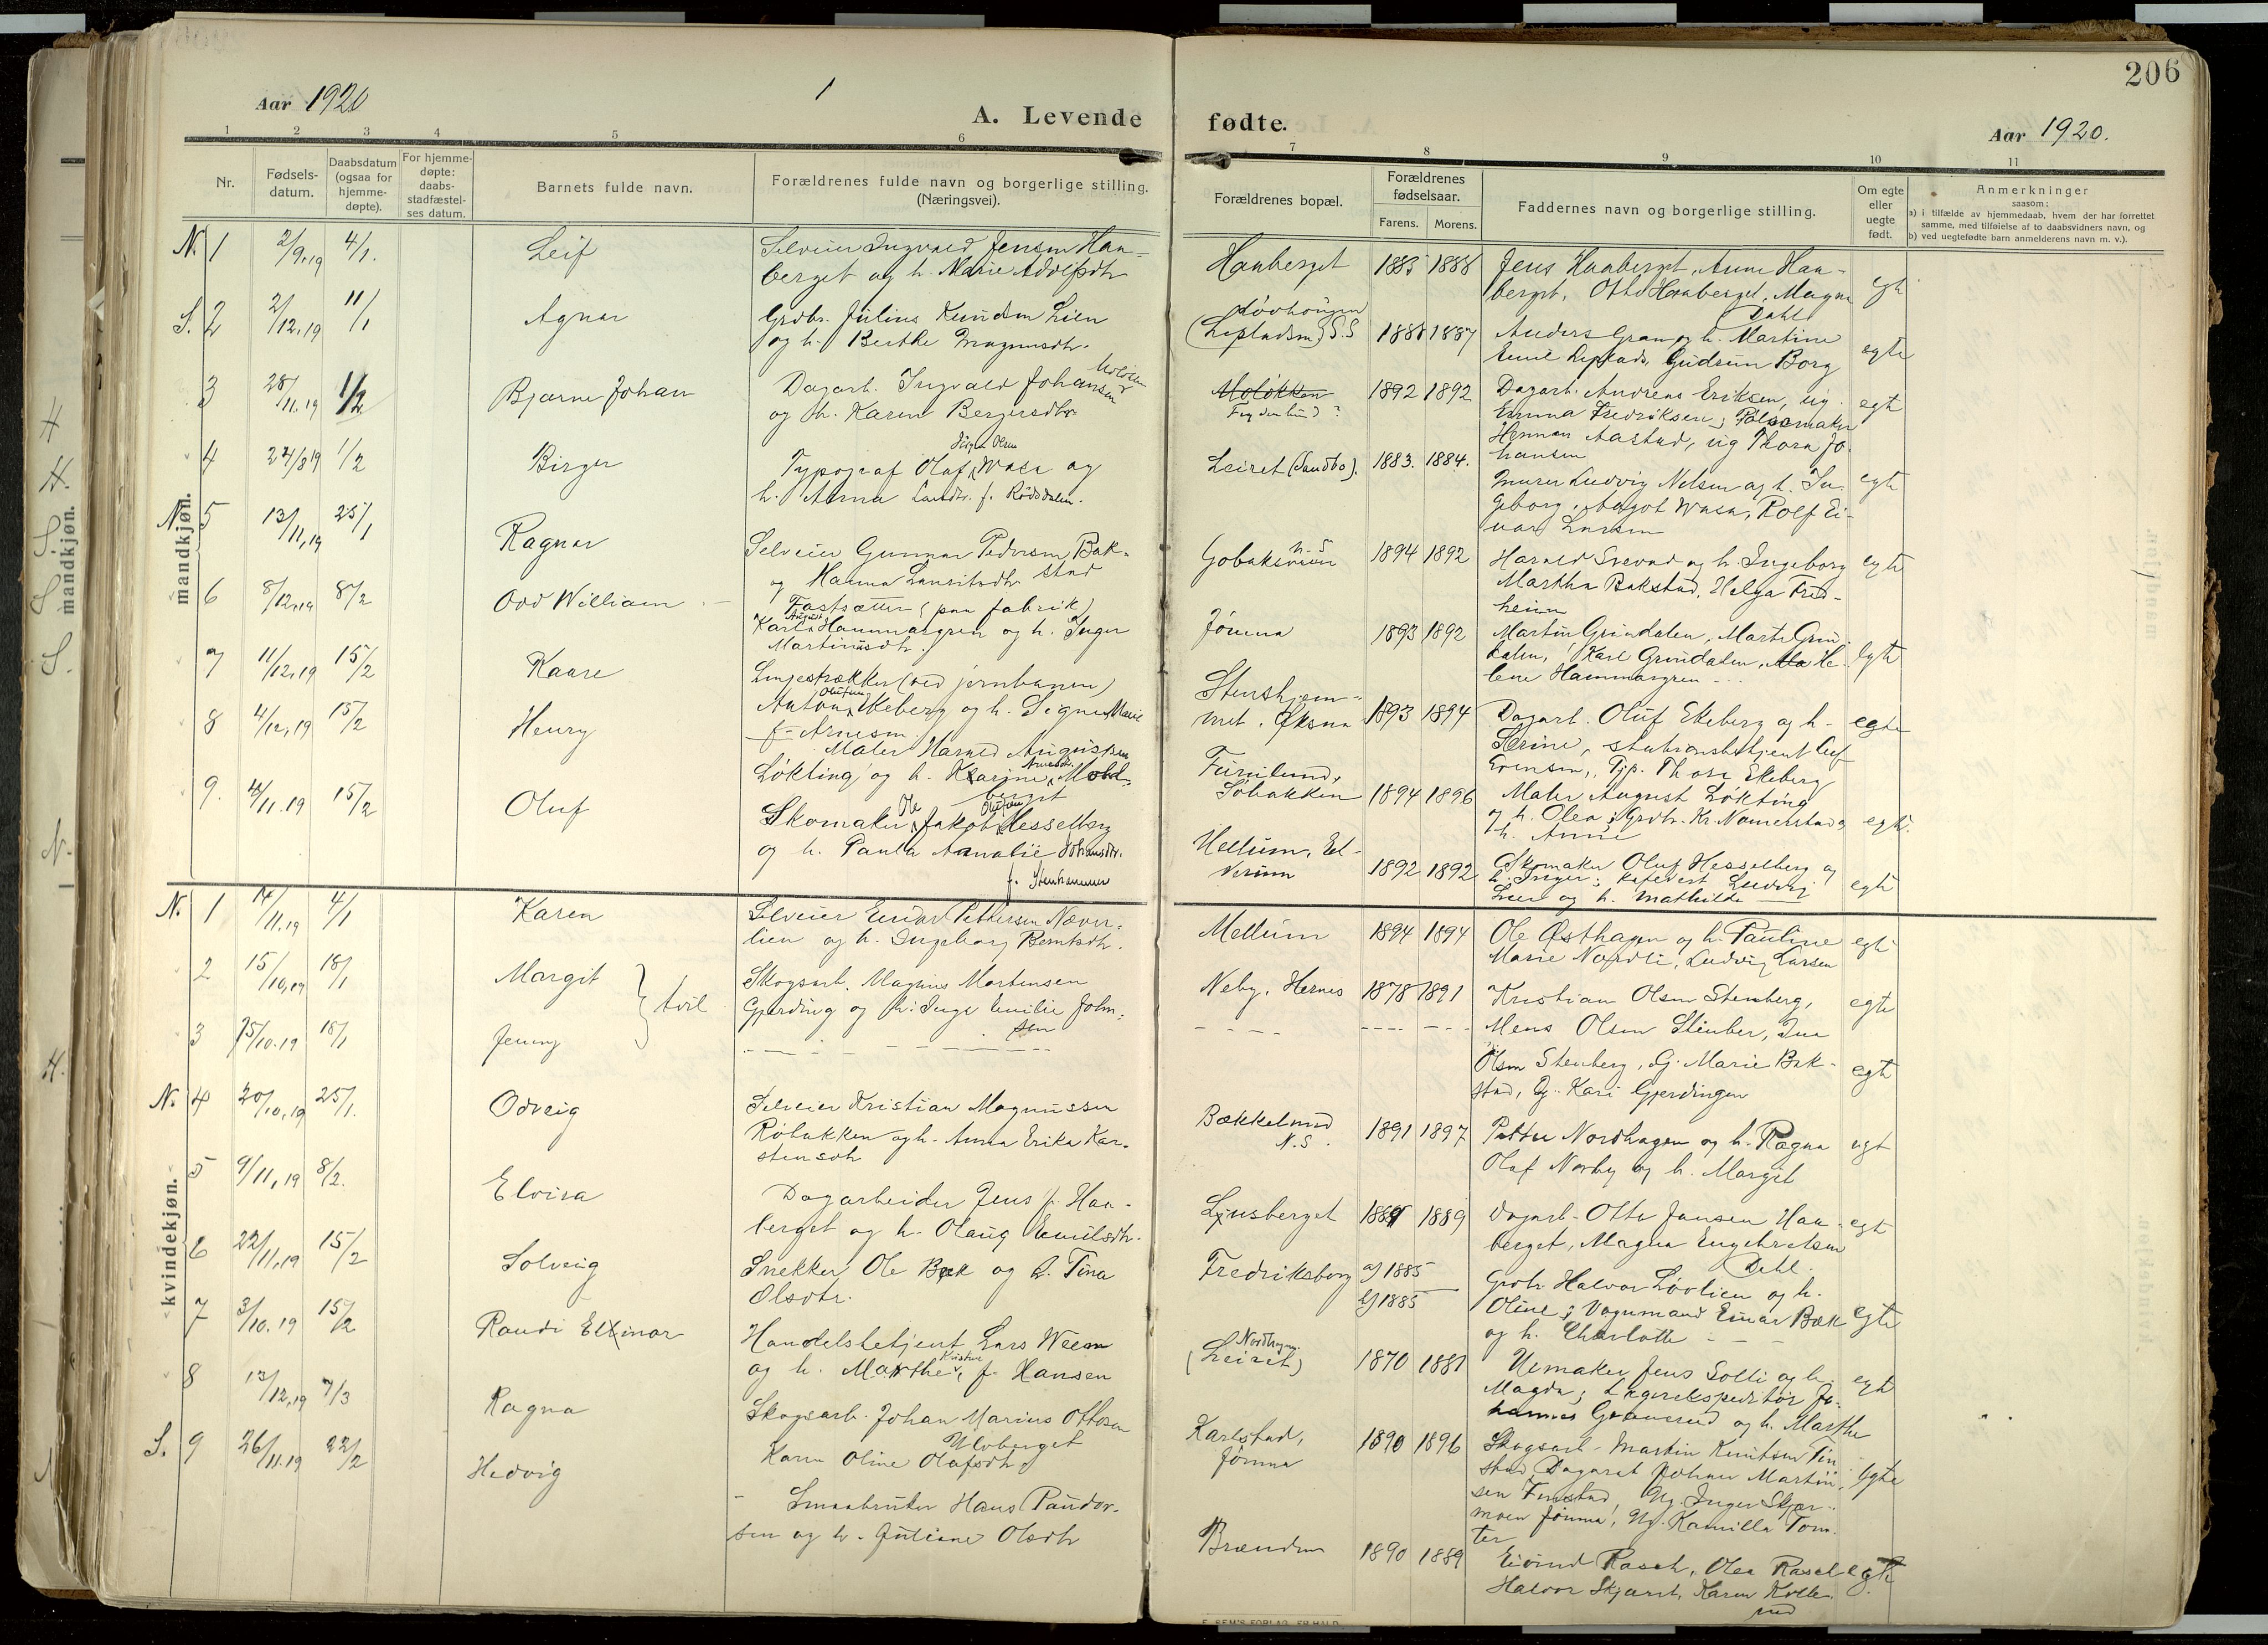 206
Aar 1920
1
A. Levende
fødte.
Aar 1920.
1 2 3 4 5 6
7 8 9 10 11
Nr.
Fødsels-
datum.
Daabsdatum
(ogsaa for
hjemme-
døpte).
For hjemme-
døpte:
daabs-
stadfæstel-
ses datum.
Barnets fulde navn.
Forældrenes fulde navn og borgerlige stilling.
(Næringsvei).
Forældrenes bopæl.
Forældrenes
fødselsaar.
Farens. Morens.
Faddernes navn og borgerlige stilling.
Om egte
eller
uegte
født.
Anmerkninger
saasom:
a) i tilfælde av hjemmedaab, hvem der har forrettet
samme, med tilføielse af to daabsvidners navn, og
b) ved uegtefødte barn anmelderens navn m. v.).
mandkjøn.
N. 1 2/9.19 4/1. Leif
Selveier Ingvald Jensen Haa-
berget og h. Marie Adolfsdtr
Haaberget 1885 1888
Jens Haaberget, Anne Haa-
berget, Otto Haaberget, Magna
Dahl
egt
S. 2 2/12.19 11/1 Agnar
Grdbr. Julius Knudsen Lien
og h. Berthe Magnusdtr.
Løvhaugen
(Løpstadsm.) S.S 1888 1887
Anders Gran og h. Martine
Emil Løpstad, Gudrun Borg
egte
3 28/11.19 1/2 Bjarne Johan
Dagarb. Ingvald Johansen
og h. Karen Bergersdtr
Moløkken
1892 1892
Dagarb. Andreas Eriksen, ug.
Emma Fredriksen, Pølsemaker
Herman Aastad, ug Thora Jo-
hansen
egt
4 24/8 19 1/2 Birger
Typograf Olaf Wasa og
h. Anna f. Rødsdalen.
Leiret (Sandbo). 1883. 1884.
Murer Ludvig Nelsen og h. In-
geborg, Aagot Wasa, Rolf Ei-
nar Larsen
egte
N. 5 13/11.19 25/1 Ragnar
Selveier Gunnar Pedersen Bak-
stad
og Hanna Lauritsdtr
N. S
1894 1892
Harald Svevad og h. Ingeborg
Martha Bakstad, Helga Fred-
heim
egte
6 8/12.19 8/2 Odd William
Fastsætter (paa fabrik)
August
Karl Hammargren og h. Inger
Martinusdtr.
Jømna 1893 1892
Martin Grindalen, Marte Grin-
dalen, Karl Grindalen, He-
lene Hammargren
egte
7 11/12.19 15/2 Kaare
Linjestrækker (ved jernbanen)
Olufsen
Anton Ekeberg og h. Signe Marie
f. Arnesen
Øksna 1893 1894
Dagarb. Oluf Ekeberg og h.
Serine, stationsbetjent Leif
Evensen, Pp. Thora Ekeberg
egte
8 4/12.19 15/2 Henry
Maler Harald Augustsen
Løkting og h. Karine Mold-
berget
Furulund,
Søbakken 1894 1896
Maler August Løkting
og h. Olea; Grdbr. Kr. Nomerstad og
h. Anne
egte.
9. 4/11.19 15/2 Oluf
Skomaker Ole Jakob Olufsen Hesselberg
og h. Paula Amalie Johansdtr.
f. Stenhammer
Hellum, El-
verum 1892 1892
Skomaker Oluf Hesselberg og
h. Inger; Ludvig
Lier og h. Mathilde
egte
kvindekjøn.
N. 1 14/11.19 4/1 Karen
Selveier Einar Pettersen Næver-
lien og h. Ingeborg Berntsdtr.
Mellum 1894 1894
Ole Østhagen og h. Pauline
Marie Nordli, Ludvig Larsen
egte
2 15/10.19 18/1 Margit
tvil.
Skogsarb. Magnus Mortensen
Gjerding og h. Inga Emilie John-
sen
Neby, Hernes 1878 1891
Kristian Olsen Stenberg,
Mons Olsen Stenber, Ina
egte
3 15/10.19 18/1 Jenny
Olsen Stenberg, Gj. Marie Bak-
stad, Gj. Kari Gjerdingen
egt
N. 4 20/10.19 25/1. Odveig
Selveier Kristian Magnussen
Robakken og h. Anna Erika Kar-
stensdtr
Bækkelund
N.S. 1891 1897
Petter Nordhagen og h. Ragna
Olaf Norby og h. Margit
egt
5 9/11.19 8/2. Elvira
Dagarbeider Jens J. Haa-
berget og h. Olaug Emilsdtr.
Ljusberget 1889
Dagarb. Otto Jansen Haa-
berget, Magna Engebretsen
Dehl.
egt
6 22/11.19 15/2 Solveig
Snekker Ole Bæk og h. Tina
Olsdtr.
Fredriksborg 1885
1885
Grdbr. Halvor Løvlien og h.
Oline; Vognmand Einar Bæk
og h. Charlotte
egte
7 3/10.19 15/2 Randi Ellinor
Handelsbetjent Lars Weem
og h. Marthe Kristine f. Hansen
Nordhagen
(Leiret) 1870 1881
Urmaker Jens Solli og h.
Magda; Lagerekspeditør Jo-
hannes Grønerud og h. Marthe
egt
8 13/12.19 7/3 Ragna
Skogsarb. Johan Marius Ottosen
Uloberget
Karen Oline Olafsdtr
Karlstad,
Jømna 1890 1896
Skogsarb. Martin Knutsen Fin-
stad, Dagarb Johan Martin-
sen Finstad, Ug. Inger Skjær-
moen Jømna, Ug. Kamilla Tom-
ter
egte
S. 9 26/11.19 22/2 Hedvig
Smaabruker Hans Paudor-
sen og h. Juliane Olsdtr
Brænden 1890 1889
Eivind Rasch, Olea Rasch
Halvor Skjærst, Karen Kolle-
rud
egte
mandkjøn.
H
H.
S
S
S.
N.
H.